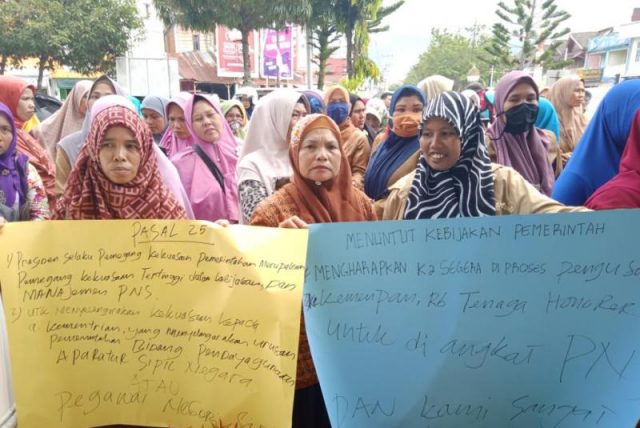 PASAL 25
1) Presiden selaku Pemegang kekuasaan Pemerintahan Merupakan
Pemegang kekuasaan Tertinggi dalam kebijakan, DAN
MANAJEMEN PNS.
2) UTK MENyelenggarakan kekuasaan kepada
a. kementrian, yang Menyelenggarakan Urusan
Pemerintahan Bidang Pendayagunaan
APARATUR SIPIL Negara
ATAU
Pegawai Negeri
MENUNTUT KEBIJAKAN PEMERINTAH
MENGHARAPKAN K2 SEGERA DI PROSES
Kemenpan, RB Tenaga Honorer
untuk di angkat PN
DAN kami sangat